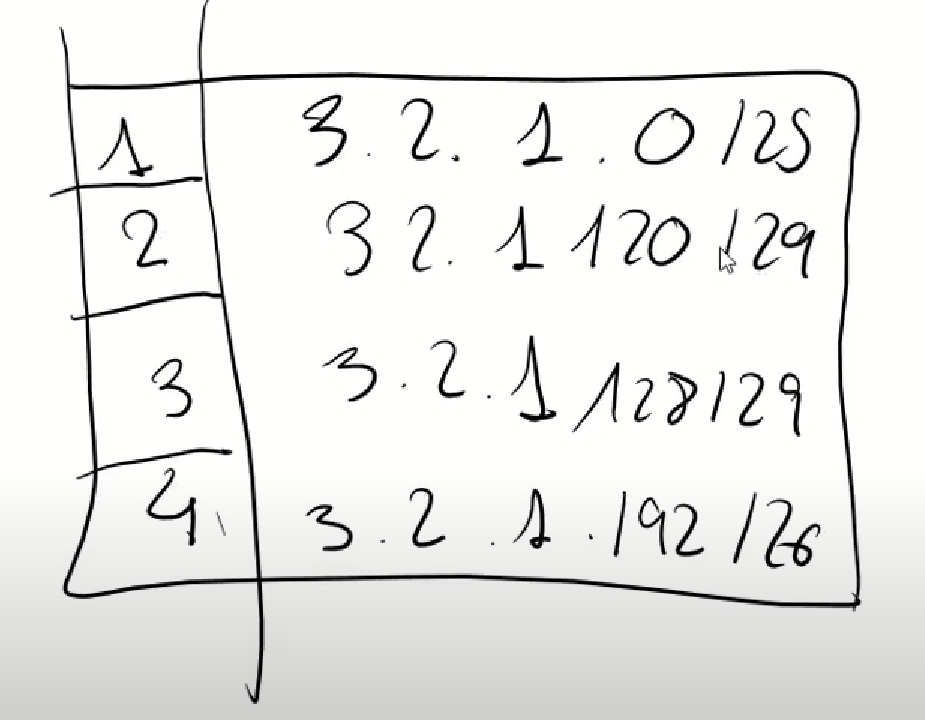 1 3.2.1.0/25
2 3 2.1 120/29
3 3.2.1 128/29
4 3.2.1.192/26